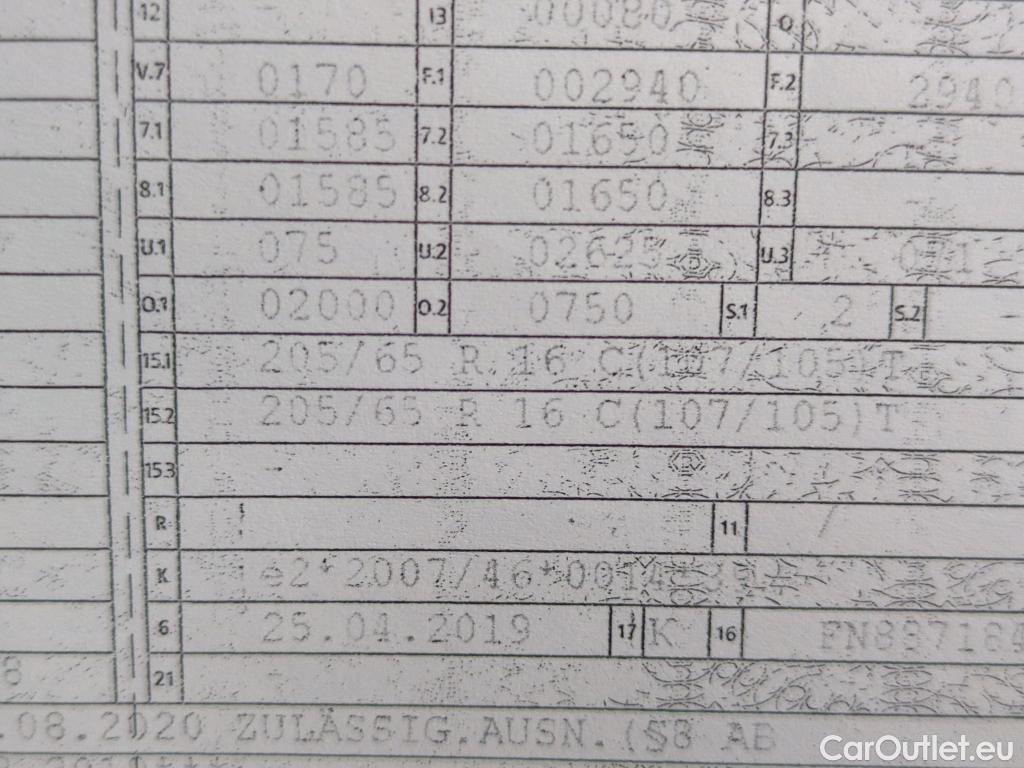 12 13 00080 Q
V.7 0170 F.1 002940 F.2 2940
7.1 01585 7.2 01650 7.3
8.1 01585 8.2 01650 8.3 -
U.1 075 U.2 02625 U.3
O.1 02000 O.2 0750 S.1 2 S.2 -
15.1 205/65 R 16 C(107/105)T
15.2 205/65 R 16 C(107/105)T
15.3 -
R 11 /
K e2*2007/46*0014
6 25.04.2019 17 K 16 FN897184
8 21
.08.2020 ZULÄSSIG.AUSN.(§8 AB
CarOutlet.eu